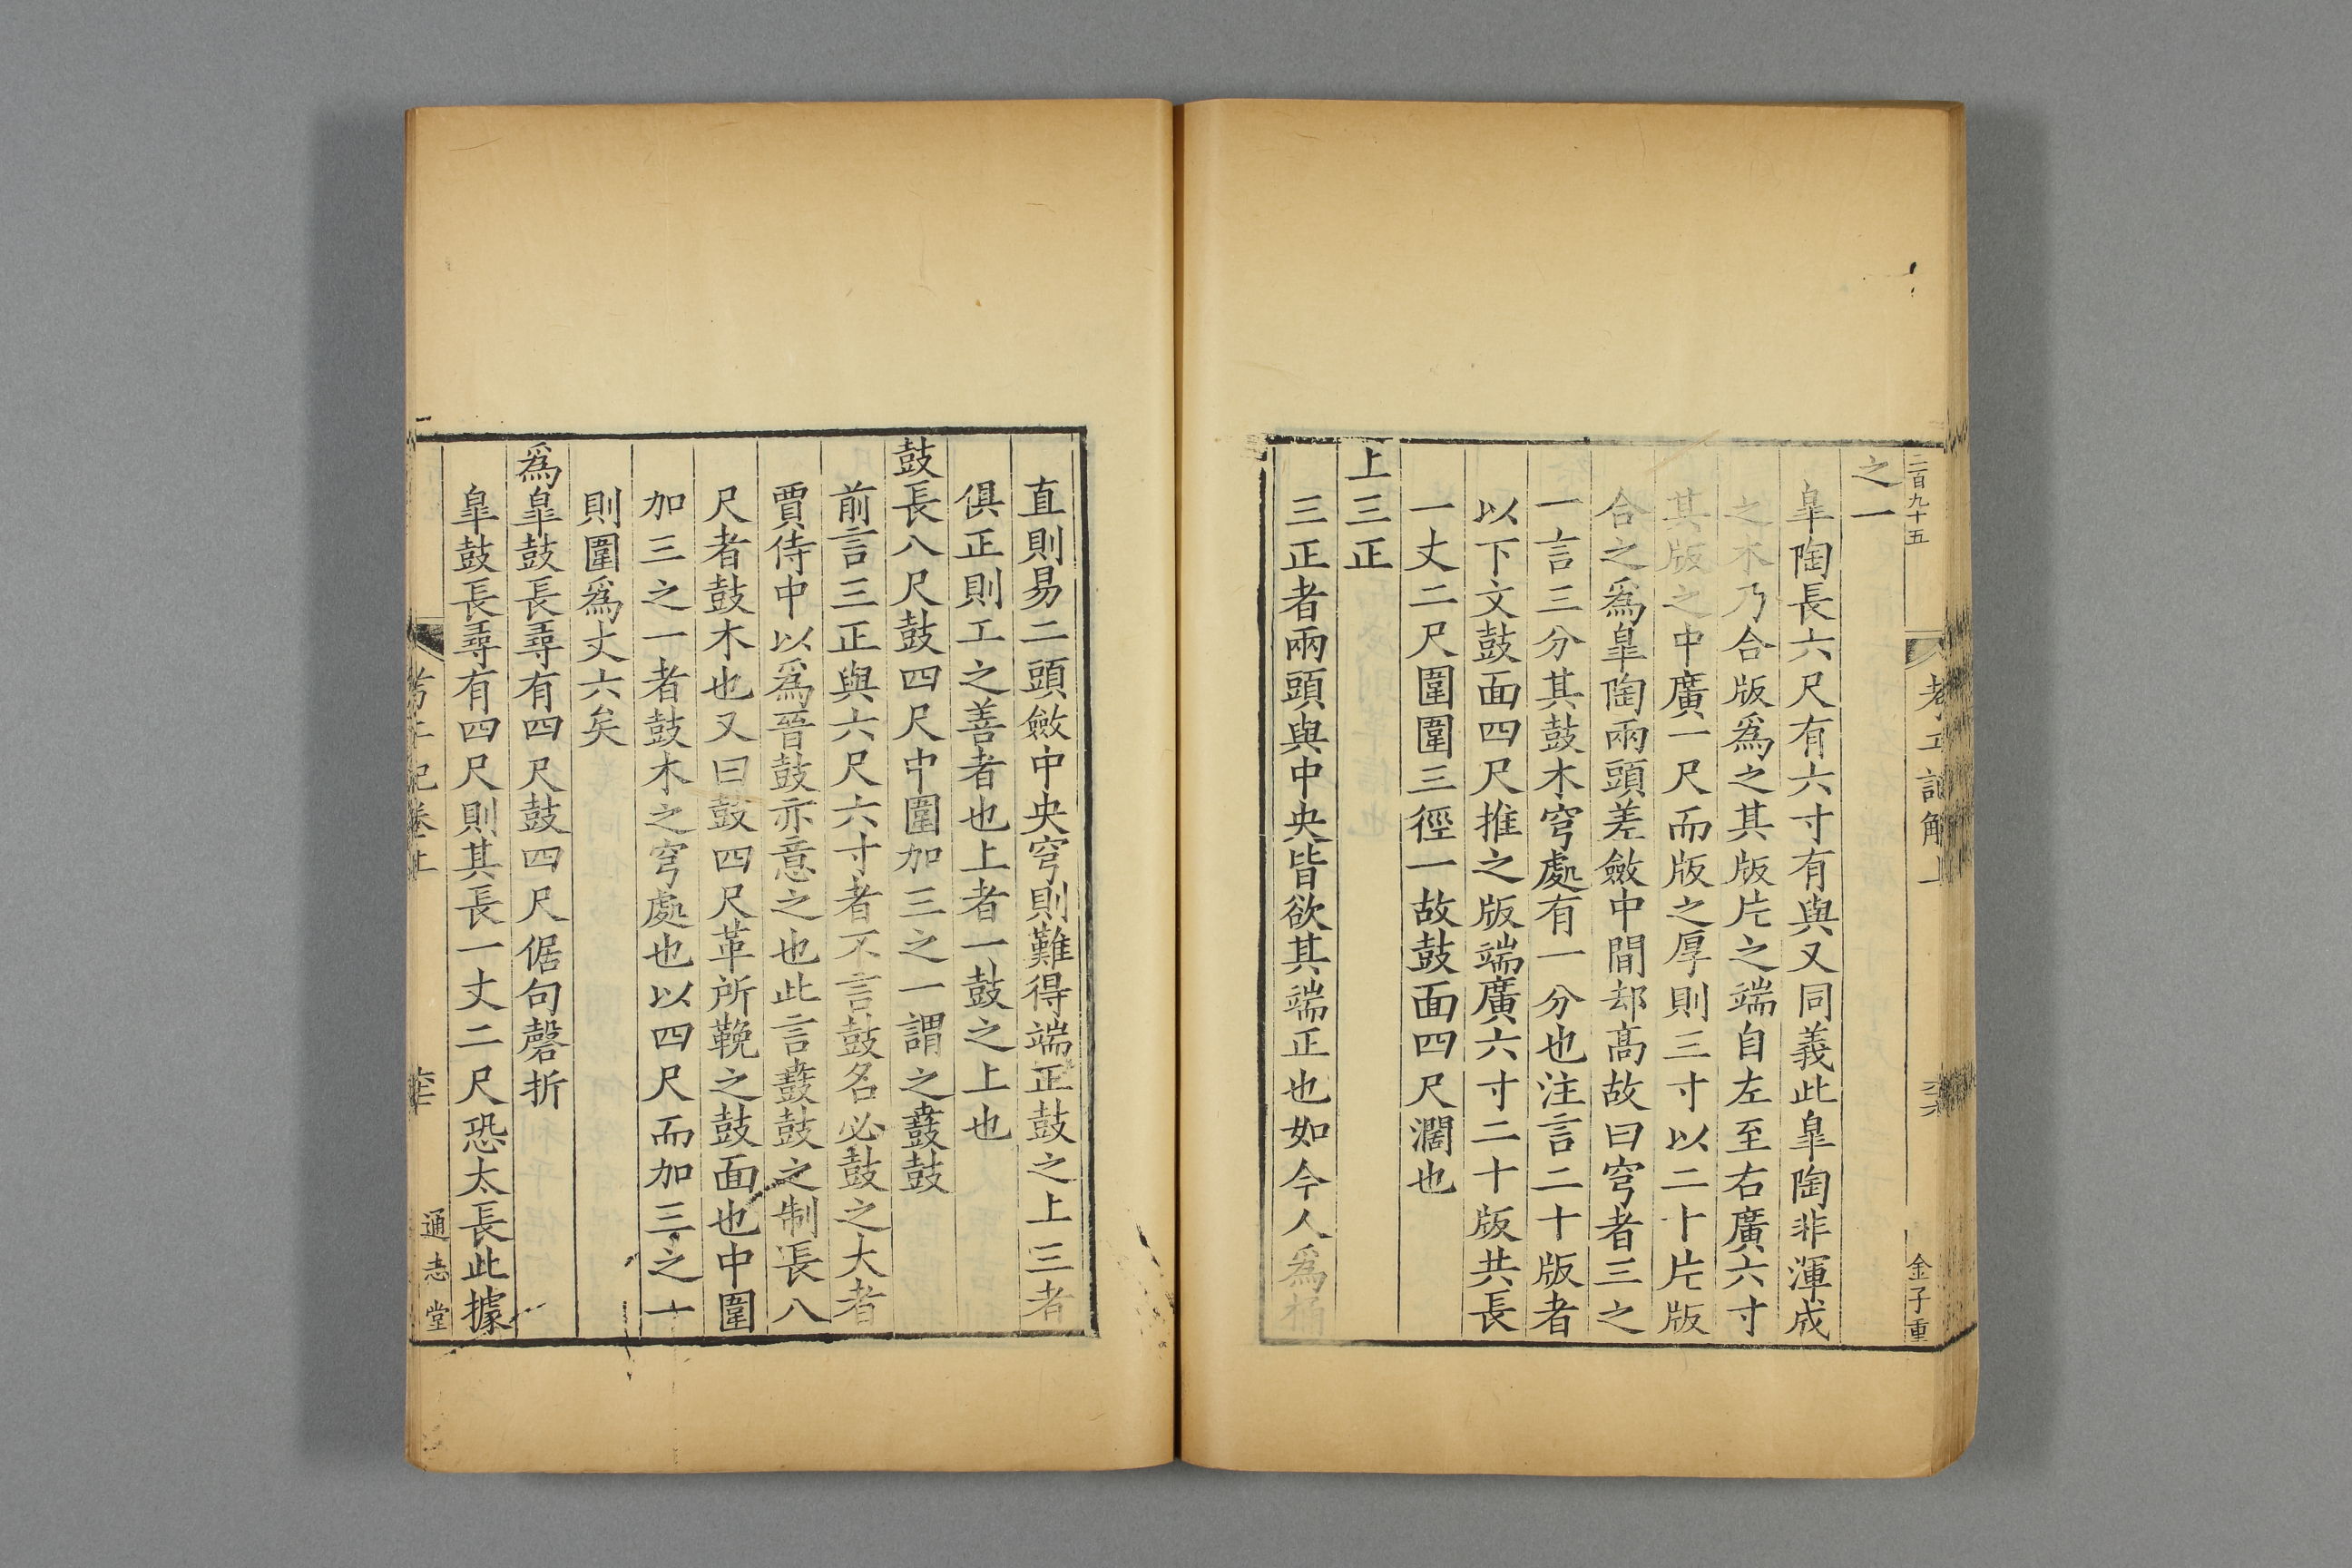 二百九十五
考工記解上
金子重
之一
皐陶長六尺有六寸有與又同義此皐陶非渾成
之木乃合版爲之其版片之端自左至右廣六寸
其版之中廣一尺而版之厚則三寸以二十片版
合之爲皐陶兩頭差斂中間却高故曰穹者三之
一言三分其鼓木穹處有一分也注言二十版者
以下文鼓面四尺推之版端廣六寸二十版共長
一丈二尺圍圍三徑一故鼓面四尺濶也
上三正
三正者兩頭與中央皆欲其端正也如今人爲桶
直則易二頭斂中央穹則難得端正鼓之上三者
俱正則工之善者也上者一鼓之上也
鼓長八尺鼓四尺中圍加三之一謂之鼖鼓
前言三正與六尺六寸者不言鼓名必鼓之大者
賈侍中以爲晉鼓亦意之也此言鼖鼓之制長八
尺者鼓木也又曰鼓四尺革所鞔之鼓面也中圍
加三之一者鼓木之穹處也以四尺而加三之一
則圍爲丈六矣
爲皐鼓長尋有四尺鼓四尺倨句磬折
皐鼓長尋有四尺則其長一丈二尺恐太長此據
考工記卷上
通志堂